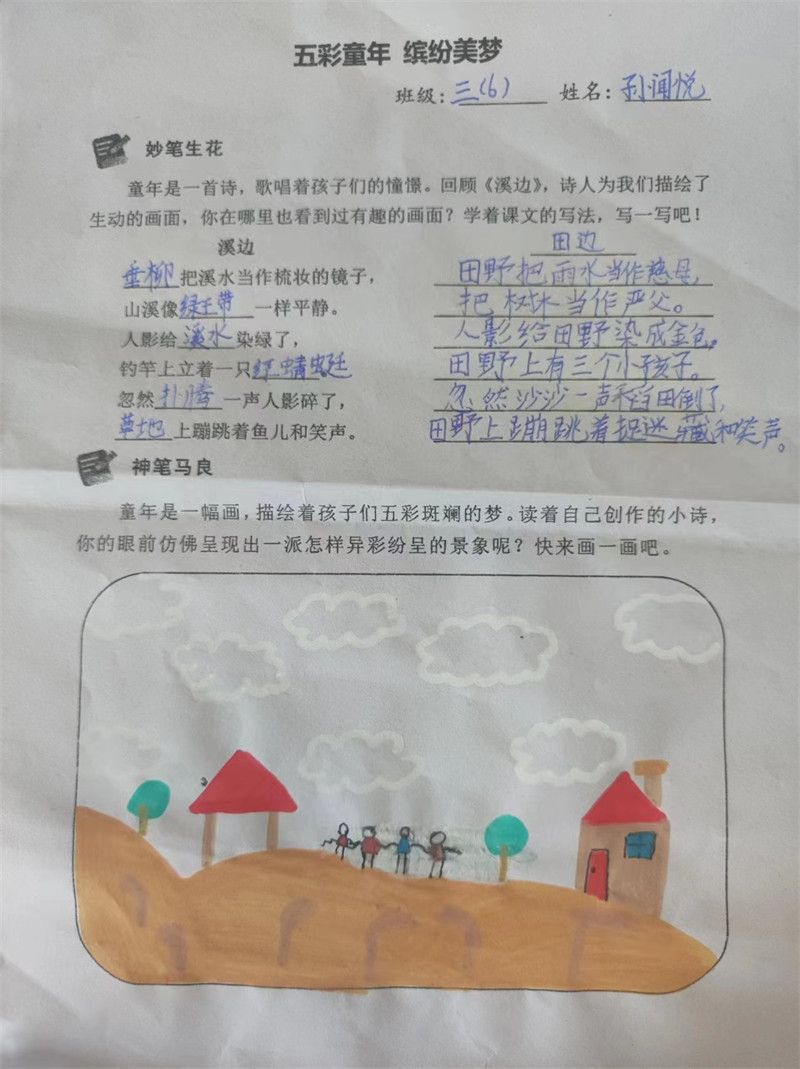 五彩童年 缤纷美梦
班级：三(6) 姓名：孙闻悦
妙笔生花
童年是一首诗，歌唱着孩子们的憧憬。回顾《溪边》，诗人为我们描绘了
生动的画面，你在哪里也看到过有趣的画面？学着课文的写法，写一写吧！
溪边
垂柳把溪水当作梳妆的镜子，
山溪像绿玉带一样平静。
人影给溪水染绿了，
钓竿上立着一只红蜻蜓
忽然扑腾一声人影碎了，
草地上蹦跳着鱼儿和笑声。
田边
田野把雨水当作慈母，
把树木当作严父。
人影给田野染成金色，
田野上有三个小孩子。
忽然沙沙一声稻田倒了，
田野上蹦跳着捉迷藏和笑声。
神笔马良
童年是一幅画，描绘着孩子们五彩斑斓的梦。读着自己创作的小诗，
你的眼前仿佛呈现出一派怎样异彩纷呈的景象呢？快来画一画吧。